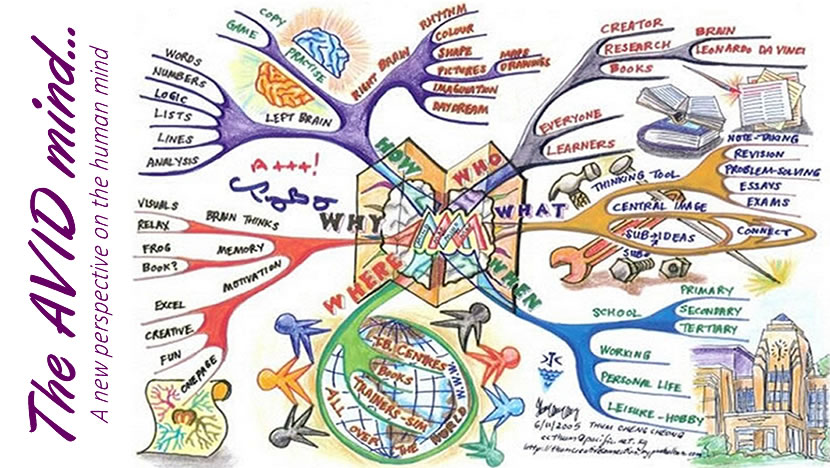 The AVID mind...
A new perspective on the human mind
HOW
COPY
GAME
PRACTISE
LEFT BRAIN
WORDS
NUMBERS
LOGIC
LISTS
LINES
ANALYSIS
RIGHT BRAIN
RHYTHM
COLOUR
SHAPE
PICTURES
MAPS
DRAWINGS
IMAGINATION
DAYDREAM
WHO
CREATOR
RESEARCH
BOOKS
BRAIN
LEONARDO DA VINCI
EVERYONE
LEARNERS
WHAT
THINKING TOOL
NOTE-TAKING
REVISION
PROBLEM-SOLVING
ESSAYS
EXAMS
CENTRAL IMAGE
SUB-IDEAS
SUB
CONNECT
WHEN
SCHOOL
PRIMARY
SECONDARY
TERTIARY
WORKING
PERSONAL LIFE
LEISURE-HOBBY
WHERE
CENTRES
BOOKS
TRAINERS-SIM
ALL OVER THE WORLD
WHY
A+++!
BRAIN THINKS
VISUALS
MEMORY
RELAX
FROG
BOOK?
MOTIVATION
EXCEL
CREATIVE
FUN
ONE PAGE
6/11/2005
THUM CHENG CHEONG